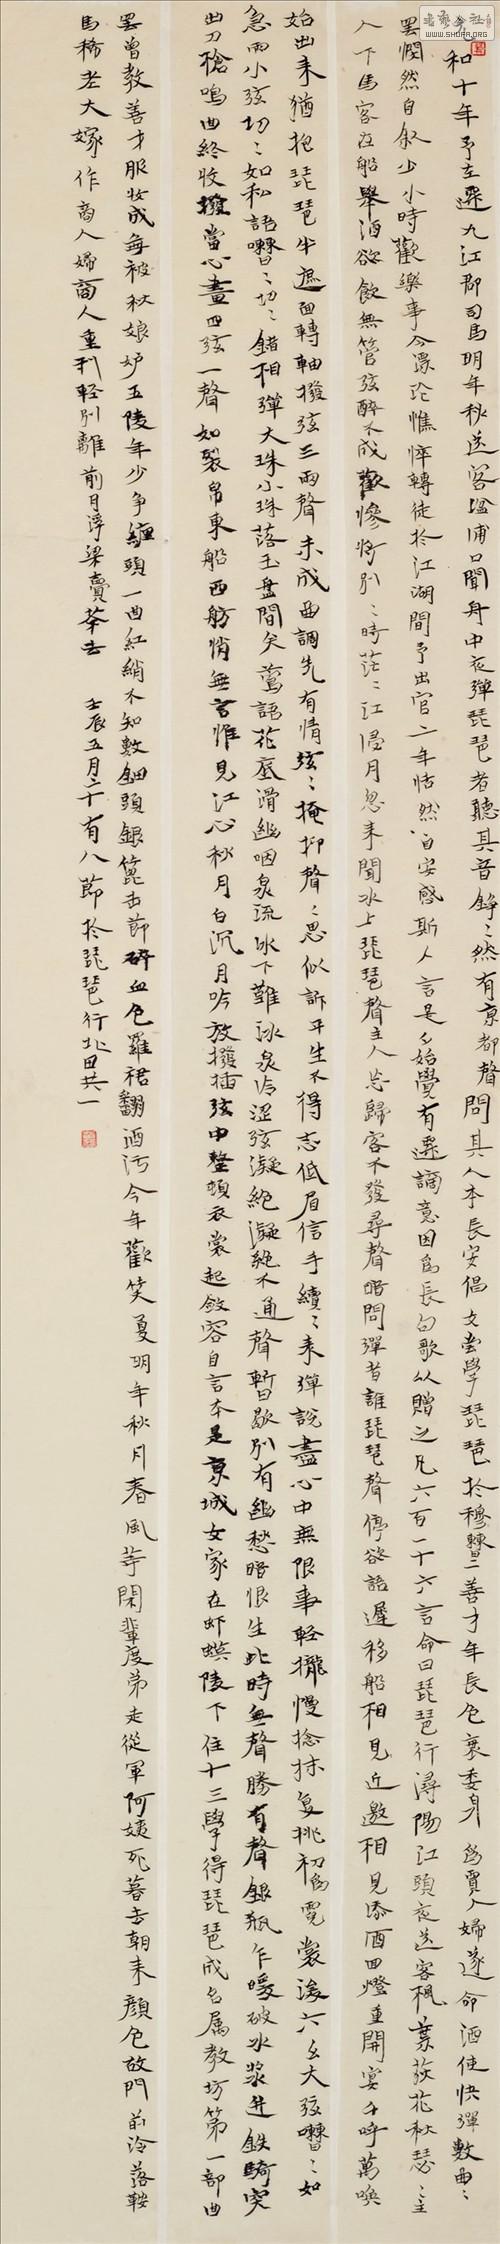 元和十年予左遷九江郡司馬明年秋送客湓浦口聞舟中夜彈琵琶者聽其音錚〻然有京都聲問其人本長安倡女嘗學琵琶於穆曹二善才年長色衰委身為賈人婦遂命酒使快彈數曲〻
罷憫然自敘少小時歡樂事今漂淪憔悴轉徒於江湖間予出官二年恬然自安感斯人言是夕始覺有遷謫意因為長句歌以贈之凡六百一十六言命曰琵琶行潯陽江頭夜送客楓葉荻花秋瑟〻主
人下馬客在船舉酒欲飲無管弦醉不成歡慘將別〻時茫〻江浸月忽來聞水上琵琶聲主人忘歸客不發尋聲暗問彈者誰琵琶聲停欲語遲移船相見近邀相見添酒回燈重開宴千呼萬喚
始出來猶抱琵琶半遮面轉軸撥弦三兩聲未成曲調先有情弦〻掩抑聲〻思似訴平生不得志低眉信手續〻來彈說盡心中無限事輕攏慢捻抹復挑初為霓裳後六幺大弦嘈〻如
急雨小弦切〻如私語嘈〻切〻錯相彈大珠小珠落玉盤間关鶯語花底滑幽咽泉流冰下難冰泉冷澀弦凝絕凝絕不通聲暫歇別有幽愁暗恨生此時無聲勝有聲銀瓶乍破水漿迸鉄騎突
出刀槍鳴曲終收撥當心畫四弦一聲如裂帛東船西舫悄無言惟見江心秋月白沉月吟放撥插弦中整頓衣裳起斂容自言本是京城女家在虾蟆陵下住十三學得琵琶成名属教坊第一部曲
罷曾教善才服妆成每被秋娘妒五陵年少争纏頭一曲紅綃不知數鈿頭銀篦击節碎血色羅裙翻酒污今年歡笑复明年秋月春風等閑輩度弟走從軍阿姨死暮去朝来顏色故門前泠落鞍
馬稀老大嫁作商人婦商人重利輕別離前月浮梁賣茶去
壬辰五月二十有八節於琵琶行北田共一
www.SHUFA.org